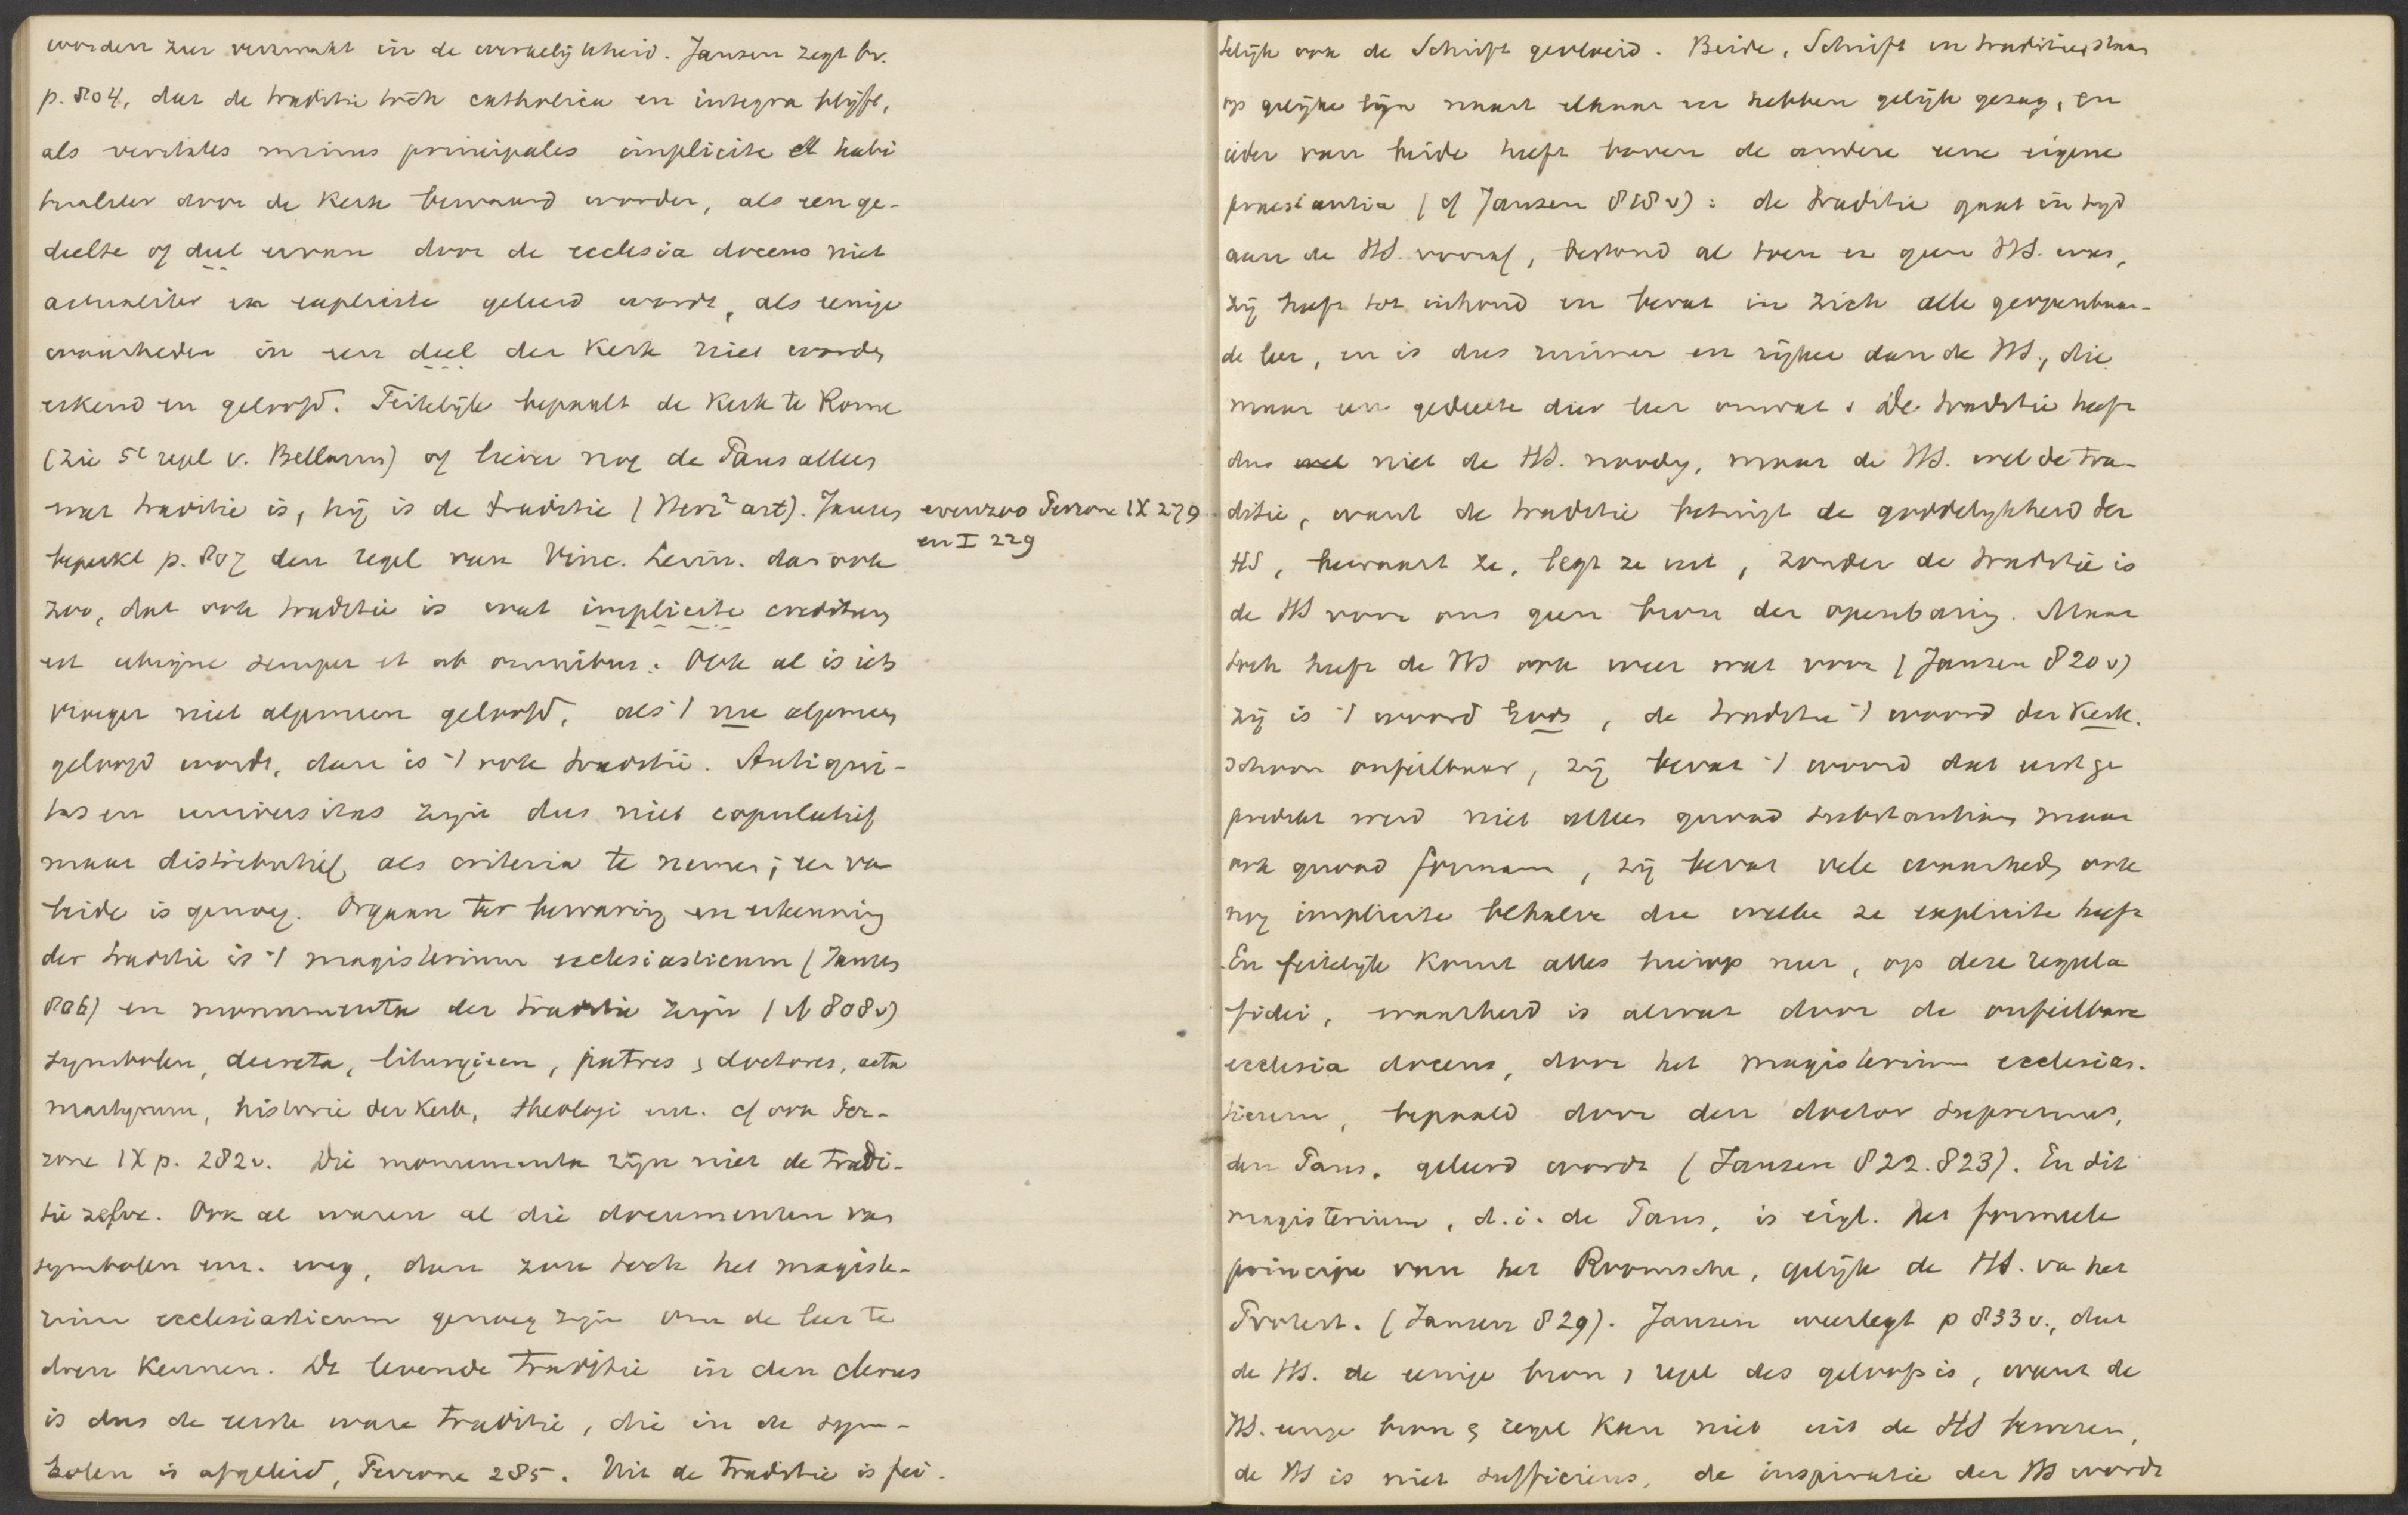 worden zeer verzwakt in de werkelijkheid. Jansen zegt bv.
p. 804, dat de traditie toch catholica en integra blijft,
als veritates minus principales implicite et habi
tualiter door de Kerk bewaard worden, als een ge-
deelte of deel ervan door de ecclesia docens niet
actualiter en explicite geleerd wordt, als eenige
waarheden in een deel der Kerk niet worden
erkend en geloofd. Feitelijk bepaalt de Kerk te Rome
(zie 5e regel v. Bellarm) of liever nog de Paus alleen
wat traditie is, hij is de traditie (Herz² art). Jansen
evenzoo Perrone IX 279
en I 229
beperkt p. 807 den regel van Vinc. Lerin. dan ook
zoo, dat ook traditie is wat implicite creditum
est ubique semper et ab omnibus: Ook al is iets
vroeger niet algemeen geloofd, als 't nu algemeen
geloofd wordt, dan is 't ook traditie. Antiqui-
tas en universitas zijn dus niet copulatief
maar distributief als criteria te nemen; een van
beide is genoeg. Orgaan ter bewaring en erkenning
der traditie is 't magisterium ecclesiasticum (Jansen
806) en monumenta der traditie zijn (cf 808v)
symbolen, decreta, liturgieen, patres & doctores, acta
martyrum, historie der Kerk, theologi enz. cf ook Per-
rone IX p. 282v. Die monumenta zijn niet de tradi-
tie zelve. Ook al waren al die documenten van
symbolen enz. weg, dan zou toch het magiste-
rium ecclesiasticum genoeg zijn om de leer te
doen kennen. De levende traditie in den clerus
is dus de eerste ware traditie, die in de sym-
bolen is afgeleid, Perrone 285. Uit de traditie is fei-
telijk ook de Schrift gevloeid. Beide, Schrift en traditie, staan
op gelijke lijn naast elkaar en hebben gelijk gezag, en
ieder van beide heeft boven de andere eene eigene
praestantia (cf Jansen 818v): de traditie gaat in tijd
aan de HS. vooraf, bestond al toen er geen HS. was,
zij heeft tot inhoud en bevat in zich alle geopenbaar-
de leer, en is dus ruimer en rijker dan de HS., die
maar een gedeelte dier leer omvat. De traditie heeft
dus niet de HS. noodig, maar de HS. wel de tra-
ditie, want de traditie betuigt de goddelijkheid der
HS, bewaart ze, legt ze uit, zonder de traditie is
de HS voor ons geen bron der openbaring. Maar
toch heeft de HS ook weer wat voor (Jansen 820v)
zij is 't woord Gods, de traditie 't woord der Kerk.
schoon onfeilbaar, zij bevat 't woord dat eerst ge
predikt werd niet alleen quoad substantiam maar
ook quoad formam, zij bevat vele waarheden ook
nog implicite behalve die welke ze explicite heeft
En feitelijk komt alles hierop neer, op deze regula
fidei, waarheid is alwat door de onfeilbare
ecclesia docens, door het magisterium ecclesias-
ticum, bepaald door den doctor supremus,
den Paus, geleerd wordt (Jansen 822.823). En dit
magisterium, d.i. de Paus, is eigl. het formeele
principe van het Roomsche, gelijk de HS. van het
Protest. (Jansen 829). Jansen weerlegt p 833v., dat
de HS. de eenige bron & regel des geloofs is, want de
HS. eenige bron & regel kan niet uit de HS bewezen,
de HS is niet sufficiens, de inspiratie der HS wordt